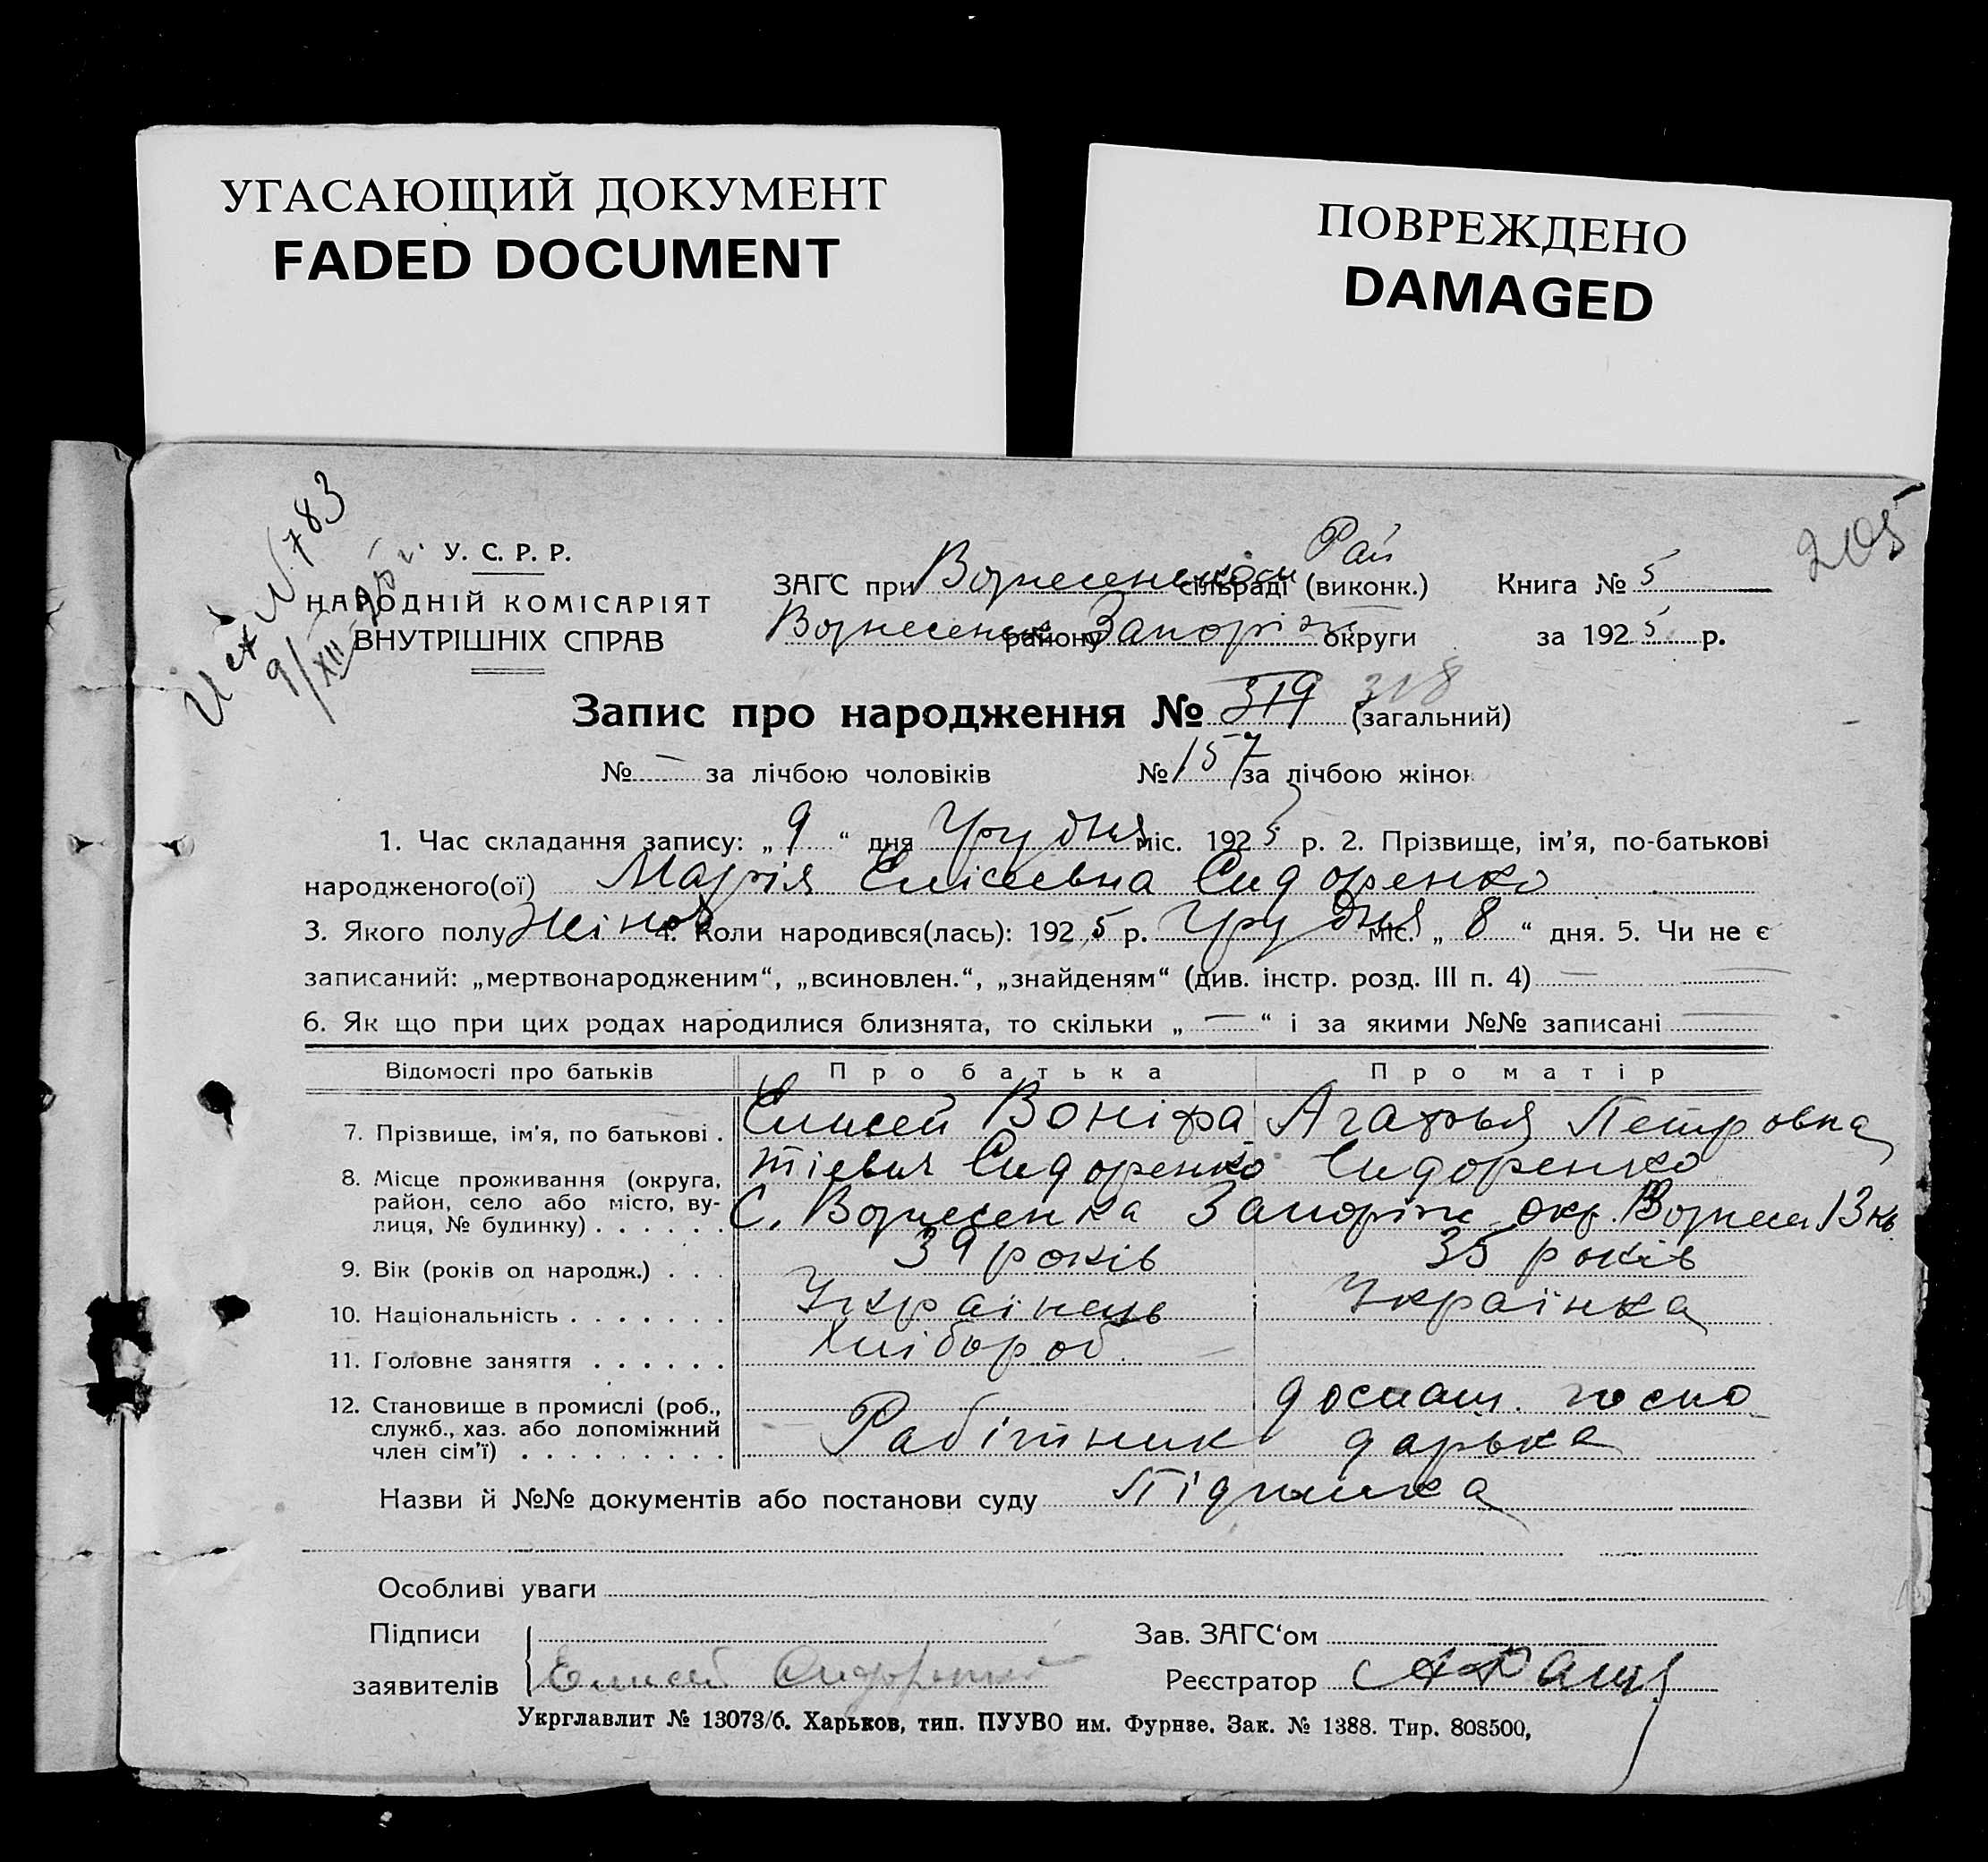 УГАСАЮЩИЙ ДОКУМЕНТ
FADED DOCUMENT
ПОВРЕЖДЕНО
DAMAGED
Исх N 783
9/XII 25 г.
205
У. С. Р. Р.
НАРОДНІЙ КОМІСАРІЯТ
ВНУТРІШНІХ СПРАВ
Рай
ЗАГС при Вознесенської сільраді (виконк.) Книга № 5
Вознесенськ району Запоріж округи за 1925 р.
Запис про народження № 319 318 (загальний)
№ — за лічбою чоловіків № 157 за лічбою жінок
1. Час складання запису: „ 9 “ дня Грудня міс. 1925 р. 2. Прізвище, ім’я, по-батькові
народженого(ої) Марія Єлісеевна Сидоренко
3. Якого полу Жіноч 4. Коли народився(лась): 1925 р. Грудня міс. „ 8 “ дня. 5. Чи не є
записаний: „мертвонародженим“, „всиновлен.“, „знайденям“ (див. інстр. розд. III п. 4) —
6. Як що при цих родах народилися близнята, то скільки „ — “ і за якими №№ записані —
Відомості про батьків Про батька Про матір
7. Прізвище, ім’я, по батькові . Елисей Воніфа Агафья Петровна
тієвич Сидоренко Сидоренко
8. Місце проживання (округа,
район, село або місто, ву-
лиця, № будинку) . . . . . . С. Вознесенка Запоріж окр. Вознесен 13 кв
9. Вік (років од народж.) . . . 39 років 35 років
10. Національність . . . . . . . Українець Українка
11. Головне заняття . . . . . . Хлібороб —
12. Становище в промислі (роб.,
служб., хаз. або допоміжний
член сім’ї) . . . . . . . . . Рабітник домаш. господарька
Назви й №№ документів або постанови суду Підписка
Особливі уваги
Підписи Зав. ЗАГС‘ом
заявителів Елисей Сидоренко Реєстратор
Укрглавлит № 13073/б. Харьков, тип. ПУУВО им. Фурнзе. Зак. № 1388. Тир. 808500,